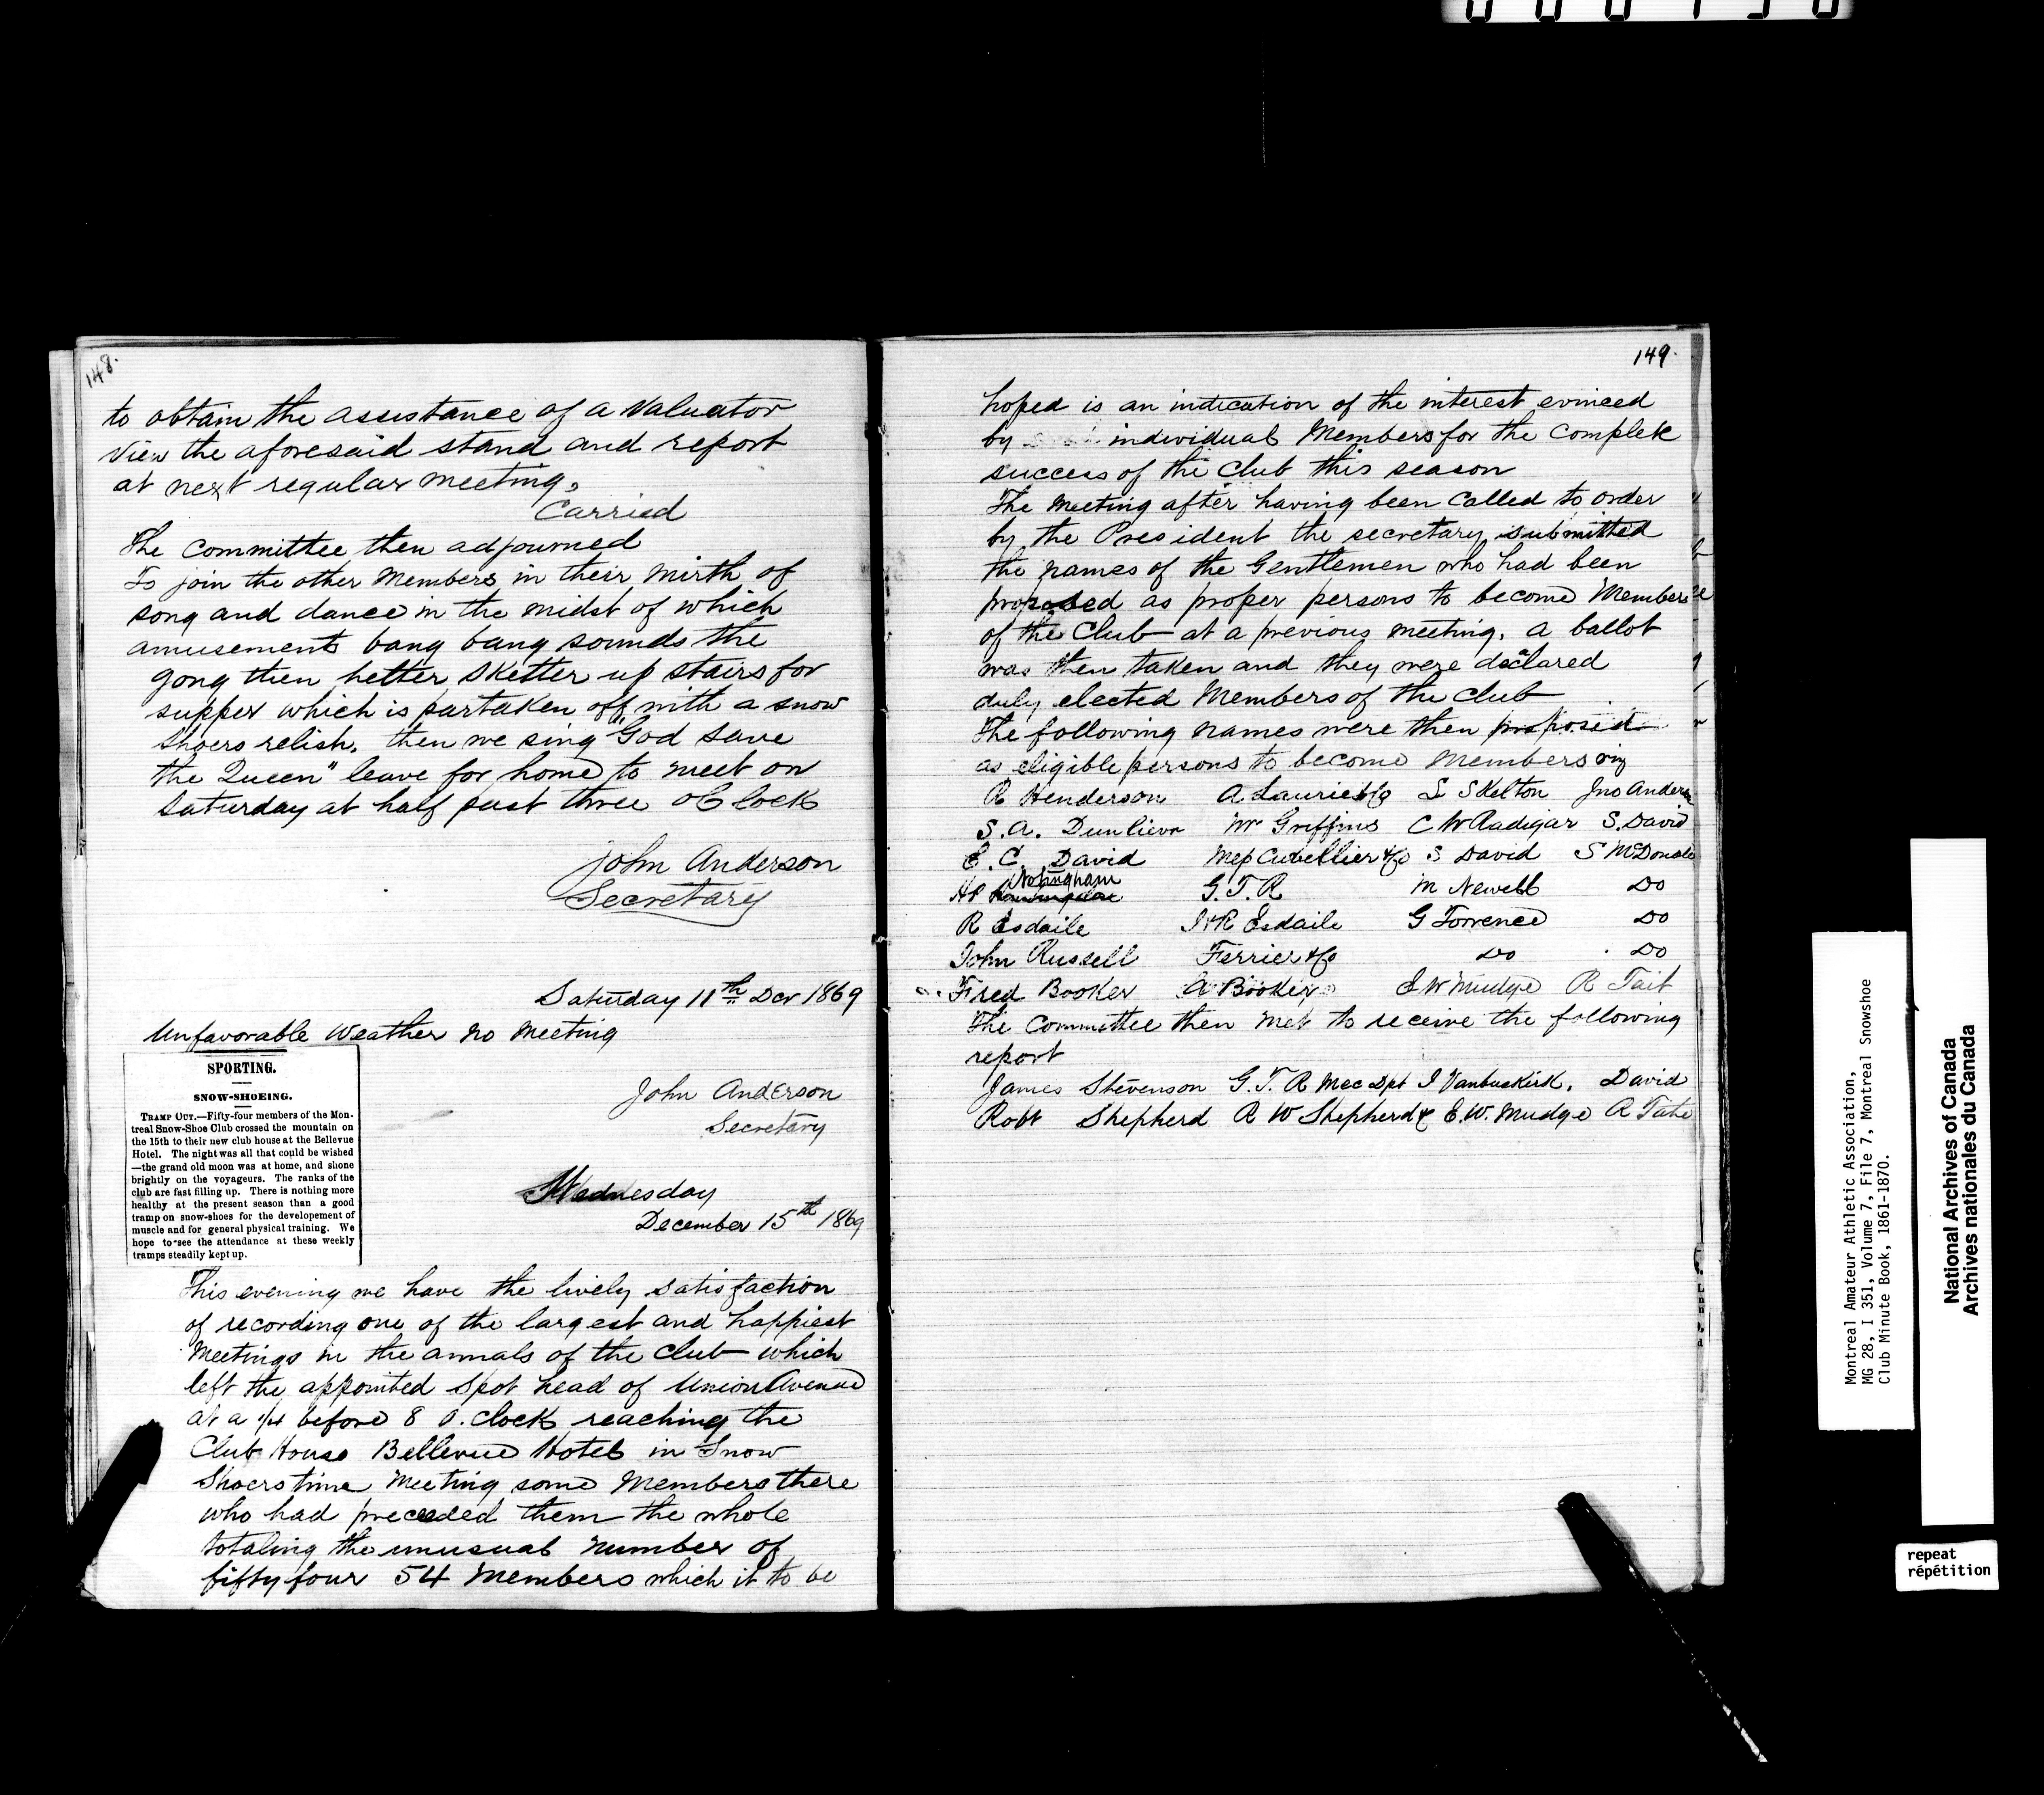 148.
to obtain the assistance of a Valuator
View the aforesaid stand and report
at next regular meeting.
Carried
The Committee then adjourned
To join the other Members in their mirth of
song and dance in the midst of which
amusements bang bang sounds the
gong then hetter sketter up stairs for
supper which is partaken off, with a snow
shoers relish, then we sing "God Save
the Queen" leave for home to meet on
Saturday at half past three oClock
John Anderson
Secretary
Saturday 11th Dec 1869
Unfavorable Weather no Meeting
John Anderson
Secretary
SPORTING.
SNOW-SHOEING.
TRAMP OUT.—Fifty-four members of the Mon-
treal Snow-Shoe Club crossed the mountain on
the 15th to their new club house at the Bellevue
Hotel. The night was all that could be wished
—the grand old moon was at home, and shone
brightly on the voyageurs. The ranks of the
club are fast filling up. There is nothing more
healthy at the present season than a good
tramp on snow-shoes for the developement of
muscle and for general physical training. We
hope to see the attendance at these weekly
tramps steadily kept up.
Wednesday
December 15th 1869
This evening we have the lively satisfaction
of recording one of the largest and happiest
Meetings in the annals of the Club which
left the appointed spot head of Union Avenue
at a 1/4 before 8 O.Clock reaching the
Club House Bellevue Hotel in Snow
Shoers time Meeting some Members there
who had preceeded them the whole
totaling the unusual number of
fifty four 54 Members which it to be
149.
hoped is an indication of the interest evinced
by individual Members for the complete
success of the Club this season
The Meeting after having been Called to order
by the President the secretary submitted
the names of the Gentlemen who had been
proposed as proper persons to become Members
of the Club at a previous meeting, a ballot
was then taken and they were declared
duly elected Members of the Club
The following names were then proposed
as eligible persons to become Members viz
R Henderson A Laurie & Co S Skelton Jno Anderson
S. A. Dunlieve Mr Griffins C W Radigar S. David
E. C. David Cuvellier & Co S David S McDonald
H P Notingham G. T. R M Newell Do
R Esdaile J & R Esdaile G Torrence Do
John Russell Ferrier & Co Do Do
Fred Booker A Booker E W Mudge R Tait
The Committee then Met to receive the following
report
James Stevenson G. T. R Mec Dpt I Vanbuskirk. David
Robt Shepherd R W Shepherd & E. W. Mudge R Tate
Montreal Amateur Athletic Association,
MG 28, I 351, Volume 7, File 7, Montreal Snowshoe
Club Minute Book, 1861-1870.
National Archives of Canada
Archives nationales du Canada
repeat
répétition